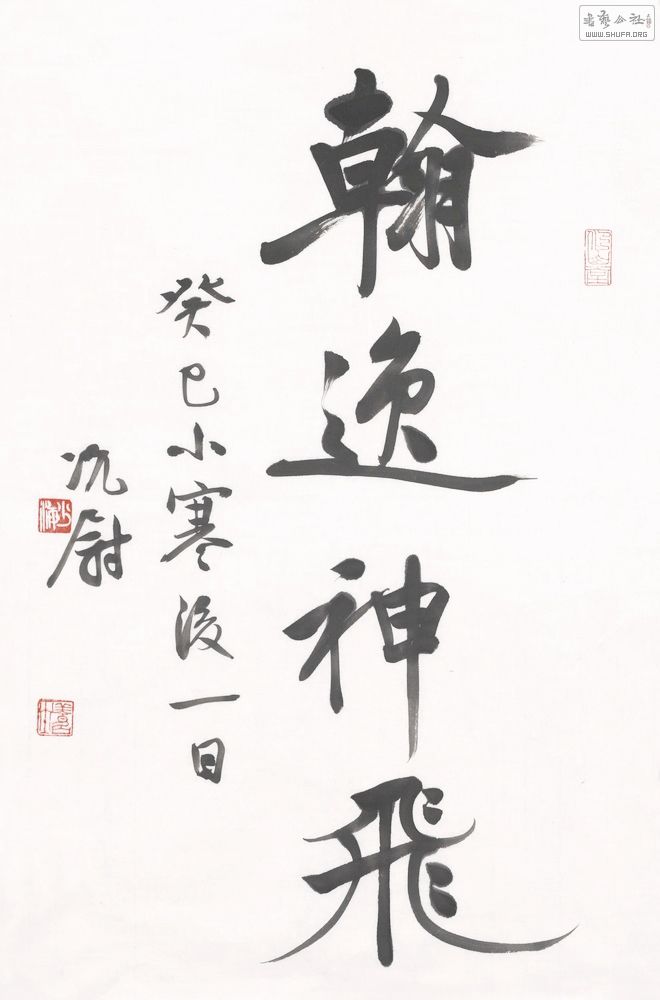 翰逸神飛
癸巳小寒後一日
沈尉
書藝公社
WWW.SHUFA.ORG